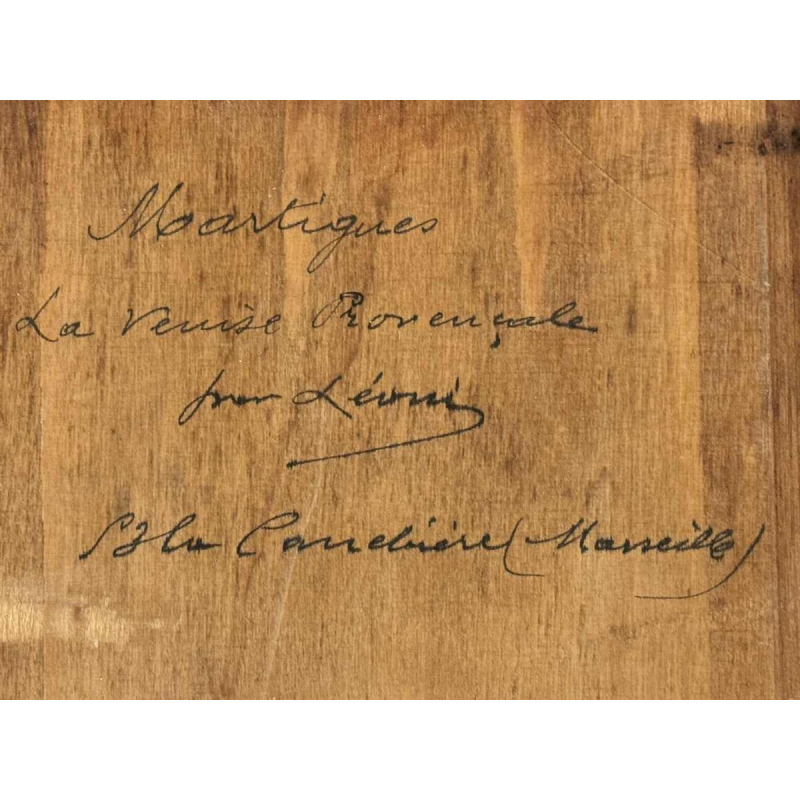 Martigues
La Venise Provençale
par Léoni
la Canebière (Marseille)